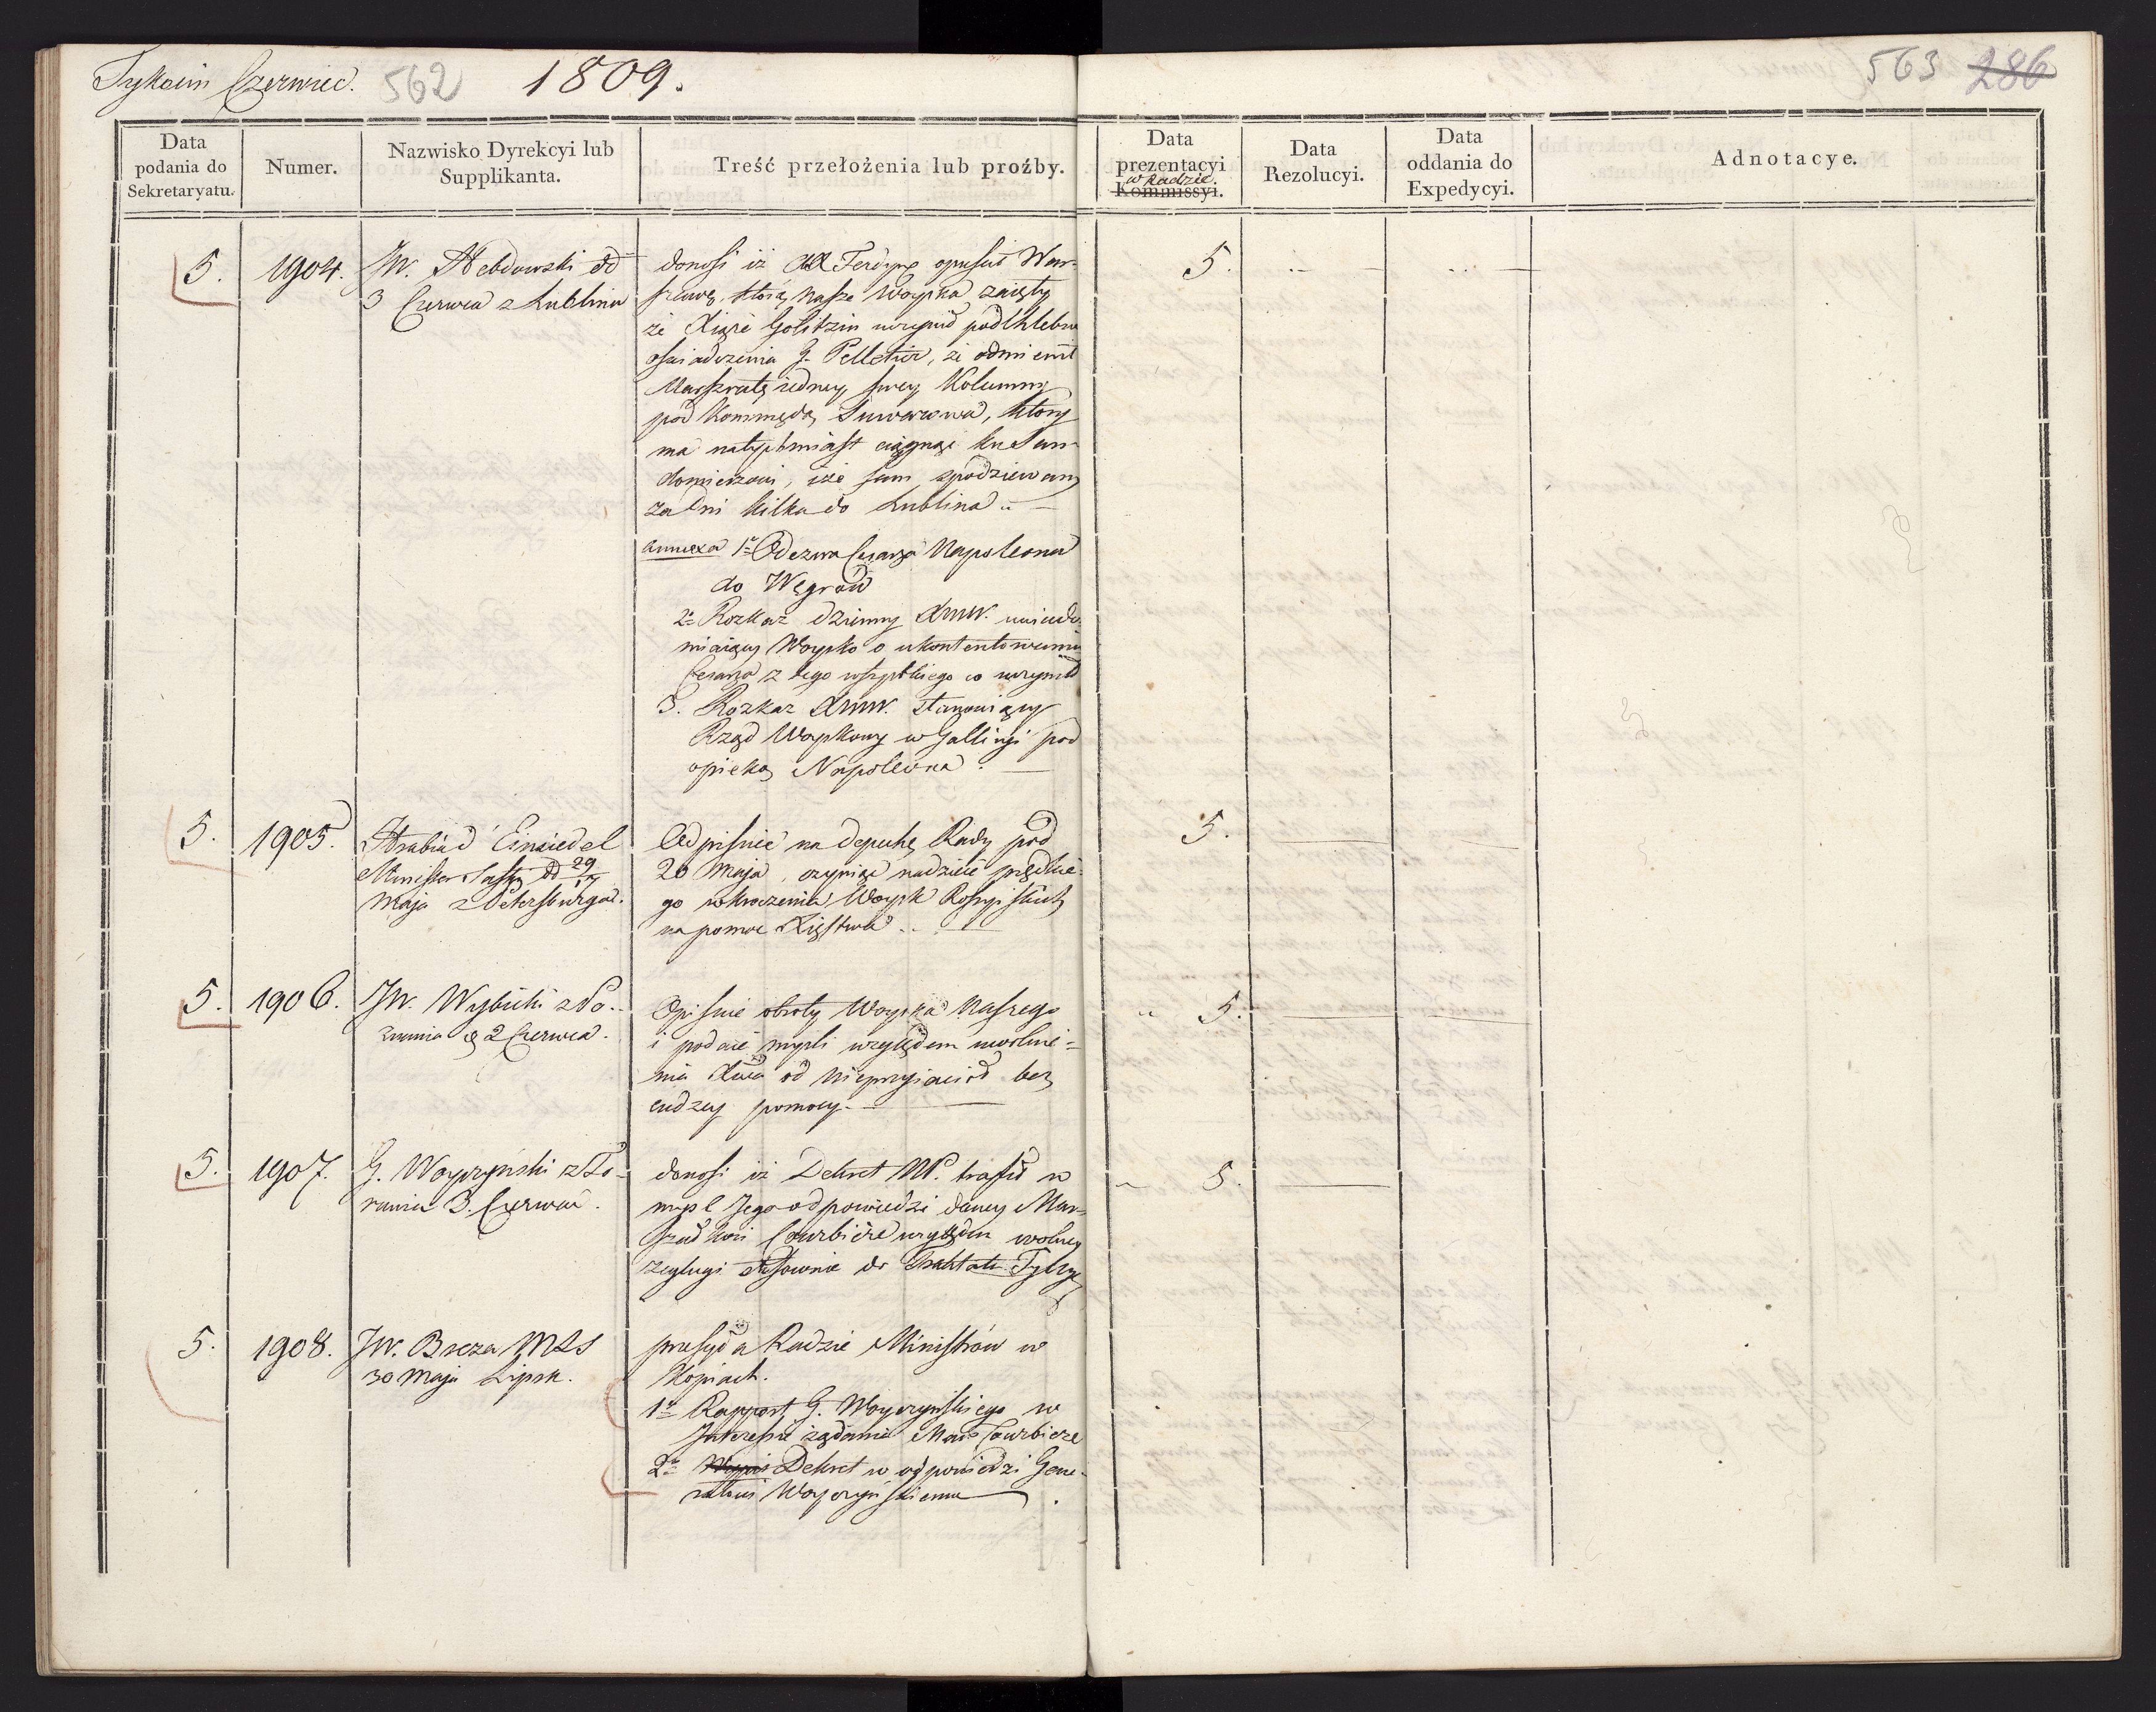 Tykocin Czerwiec. 562 1809.
563 286
Data podania do Sekretaryatu.
Numer.
Nazwisko Dyrekcyi lub Supplikanta.
Treść przełożenia lub proźby.
Data prezentacyi w Radzie. Kommissyi.
Data Rezolucyi.
Data oddania do Expedycyi.
Adnotacye.
5. 1904. JW. Hebdowski dd
3 Czerwca z Lublina
donosi iż Ferdyn opuścił War-
szawę, którą nasze Woyska zaięły
że Xiąże Golitzin uczynił pochlebne
oświadczenia G. Pelletier, że odmienił
Marszrutę iedney swey Kolumny
pod Kommędą Suwarowa, który
ma natychmiast ciągnąć ku San-
domierzowi, iże sam spodziewany
za dni kilka do Lublina
Annexa 1o Odezwa Cesarza Napoleona
do Węgrów
2o Rozkaz dzienny uwiado-
miaiący Woysko o ukontentowaniu
Cesarza z tego wszystkiego co uczynił
3. Rozkaz stanowiący
Rząd Woyskowy w Gallicyi pod
opieką Napoleona.
5.
5. 1905. Hrabia Einsiedel
Minister Saski dd 29/17
Maja z Petersburga.
Odpisuie na depeszę Rady pod
20 Maja, czyniąc nadzieie prędkie-
go wkroczenia Woysk Rossyiskich
na pomoc Xięstwa.
5.
5. 1906. JW. Wybicki z Po-
znania 2 Czerwca.
Opisuie obroty Woyska Naszego
i podaie myśli względem uwolnie-
nia od nieprzyiaciół bez
cudzey pomocy.
5.
5. 1907. G. Woyczyński z To-
runia 3. Czerwca.
donosi iż Dekret trafił w
myśl Jego odpowiedzi daney Mar-
szałkowi Courbiere względem wolney
żeglugi stosownie do Traktatu Tylży
5.
5. 1908. JW. Breza MSS
30 Maja Lipsk.
przesyła Radzie Ministrów w
Kopiach.
1o Rapport G. Woyczyńskiego w
Interessie żądania Mars Courbiere
2o Dekret w odpowiedzi Gene-
rałowi Woyczyńskiemu.